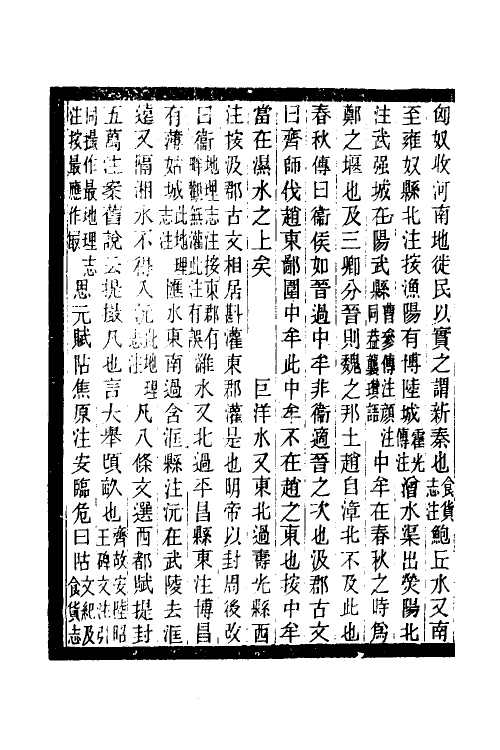 匈奴收河南地徙民以實之謂新秦也食貨志注鮑丘水又南
至雍奴縣北注按漁陽有博陸城霍光傳注渠水出滎陽北
注武强城在陽武縣曹參傳注顏同益薑瓚語注中牟在春秋之時爲
鄭之堰也及三卿分晉則魏之邦土趙自漳北不及此也
春秋傳曰衞侯如晉過中牟非衞適晉之次也汲郡古文
曰齊師伐趙東鄙圍中牟此中牟不在趙之東也按中牟
當在濕水之上矣 巨洋水又東北過壽光縣西
注按汲郡古文相居斟灌東郡灌是也明帝以封周後改
曰衞地理志注按東郡有畔觀無灌此注有誤濰水又北過平昌縣東注博昌
有薄姑城此地理志注匯水東南過含洭縣注沅在武陵去洭
遠又隔湘水不得入沅此地理志注凡八條文選西都賦提封
五萬注案舊說云提撮凡也言大舉頃畝也齊故安陸昭王碑文注引
同撮作最地理志注按最應作冣思元賦阽焦原注安臨危曰阽文紀及食貨志